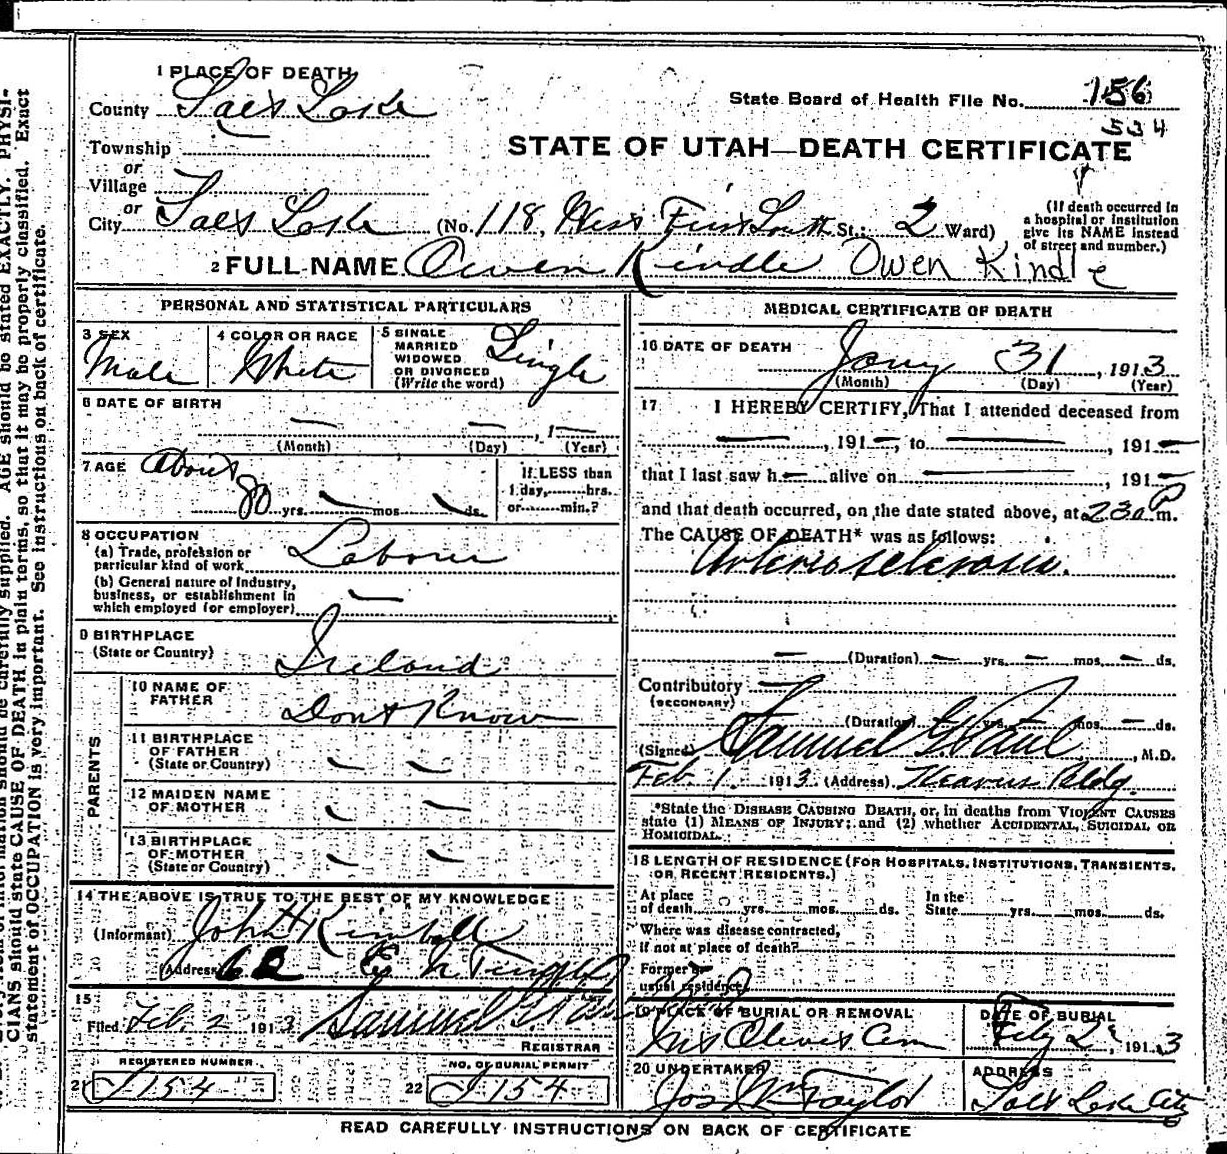 CIANS should state CAUSE OF DEATH in plain terms, so that it may be properly classified. Exact
statement of OCCUPATION is very important. See instructions on back of certificate.
1 PLACE OF DEATH
County Salt Lake
State Board of Health File No. 156
534
STATE OF UTAH—DEATH CERTIFICATE
Township
or
Village
or
City Salt Lake (No. 118, West First South St.; 2 Ward)
(If death occurred in
a hospital or institution
give its NAME instead
of street and number.)
2 FULL NAME Owen Kindle Owen Kindle
PERSONAL AND STATISTICAL PARTICULARS
3 SEX
Male
4 COLOR OR RACE
White
5 SINGLE
MARRIED
WIDOWED
OR DIVORCED
(Write the word)
Single
6 DATE OF BIRTH
— — , 1—
(Month) (Day) (Year)
7 AGE About
80 yrs. — mos. — ds.
If LESS than
1 day, hrs.
or min.?
8 OCCUPATION
(a) Trade, profession or
particular kind of work Laborer
(b) General nature of Industry,
business, or establishment in
which employed (or employer) —
9 BIRTHPLACE
(State or Country) Ireland
PARENTS
10 NAME OF
FATHER Dont Know
11 BIRTHPLACE
OF FATHER
(State or Country) — —
12 MAIDEN NAME
OF MOTHER — —
13 BIRTHPLACE
OF MOTHER
(State or Country) — —
14 THE ABOVE IS TRUE TO THE BEST OF MY KNOWLEDGE
(Informant) John H Kimball
(Address)
15
Filed Feb. 2 1913 Samuel G. Paul
REGISTRAR
REGISTERED NUMBER
21 J 154
NO. OF BURIAL PERMIT
22 J 154
MEDICAL CERTIFICATE OF DEATH
16 DATE OF DEATH
Jany 31, 1913
(Month) (Day) (Year)
17 I HEREBY CERTIFY, That I attended deceased from
— , 191— , to — , 191—
that I last saw h— alive on — , 191—
and that death occurred, on the date stated above, at 230 P m.
The CAUSE OF DEATH* was as follows:
Arteriosclerosis.
— (Duration) — yrs. — mos. — ds.
Contributory —
(SECONDARY)
(Duration) — yrs. — mos. — ds.
(Signed) Samuel G. Paul, M.D.
Feb. 1. 1913 (Address) Heavens Bldg.
*State the DISEASE CAUSING DEATH, or, in deaths from VIOLENT CAUSES
state (1) MEANS OF INJURY; and (2) whether ACCIDENTAL, SUICIDAL OR
HOMICIDAL.
18 LENGTH OF RESIDENCE (FOR HOSPITALS, INSTITUTIONS, TRANSIENTS,
OR RECENT RESIDENTS.)
At place
of death yrs. mos. ds.
In the
State yrs. mos. ds.
Where was disease contracted,
if not at place of death?
Former or
usual residence
19 PLACE OF BURIAL OR REMOVAL
Mt Olivet Cem
DATE OF BURIAL
Feby 2, 1913
20 UNDERTAKER
Jos Wm Taylor
ADDRESS
Salt Lake City
READ CAREFULLY INSTRUCTIONS ON BACK OF CERTIFICATE